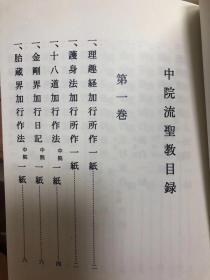 中院流聖教目録
第一巻
一、理趣経加行所作 一紙……………二
一、護身法加行所作 一紙……………二
一、十八道加行作法 中院 一紙……………四
一、金剛界加行日記 中院 一紙……………六
一、胎蔵界加行作法 中院 一紙……………八